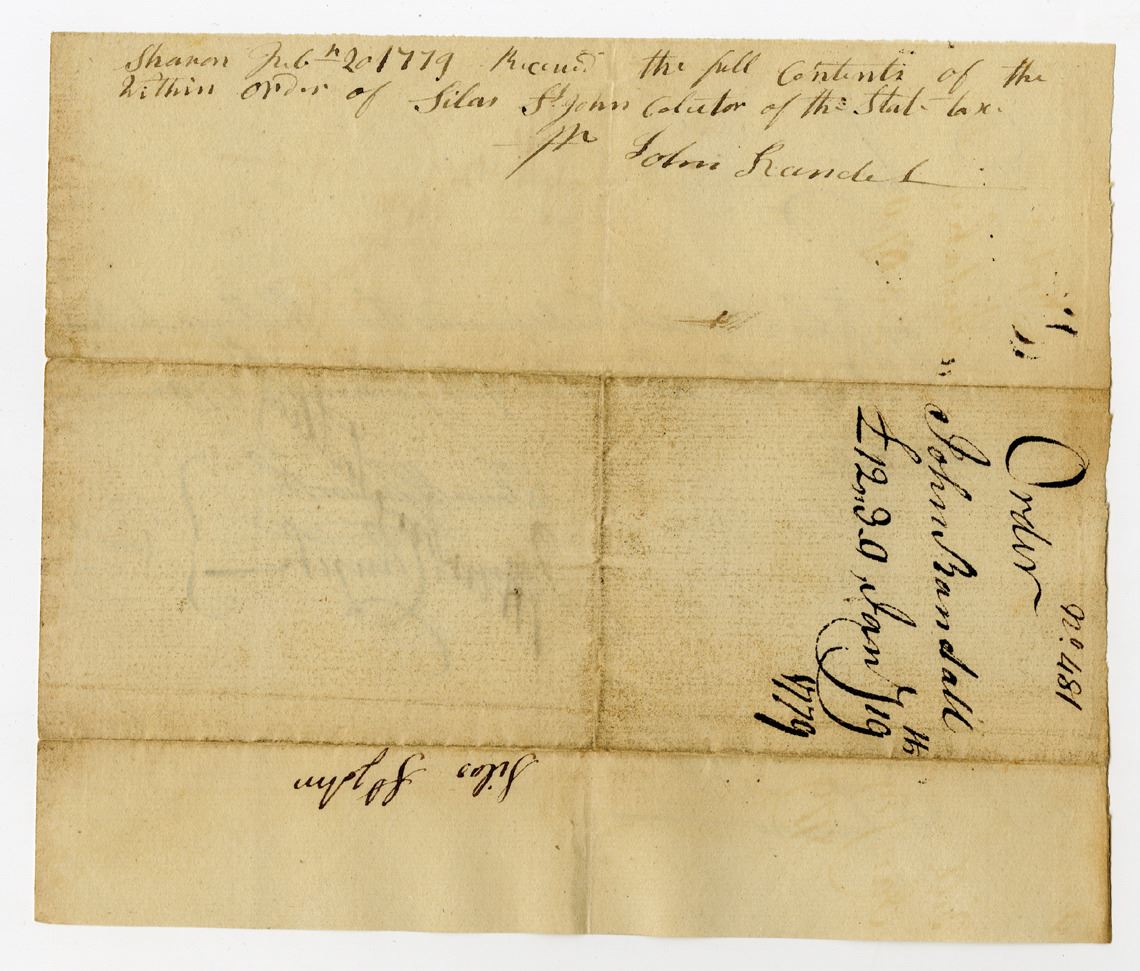 Sharon Feb.ʳʸ 20 1779 Received the full Contents of the
Within order of Silas Sᵗ John Colector of the State tax.
Pr John Randel
No. 481
Order
John Randall
£12..0..0 Janʸ 19ᵗʰ
1779
Silas Sᵗ John